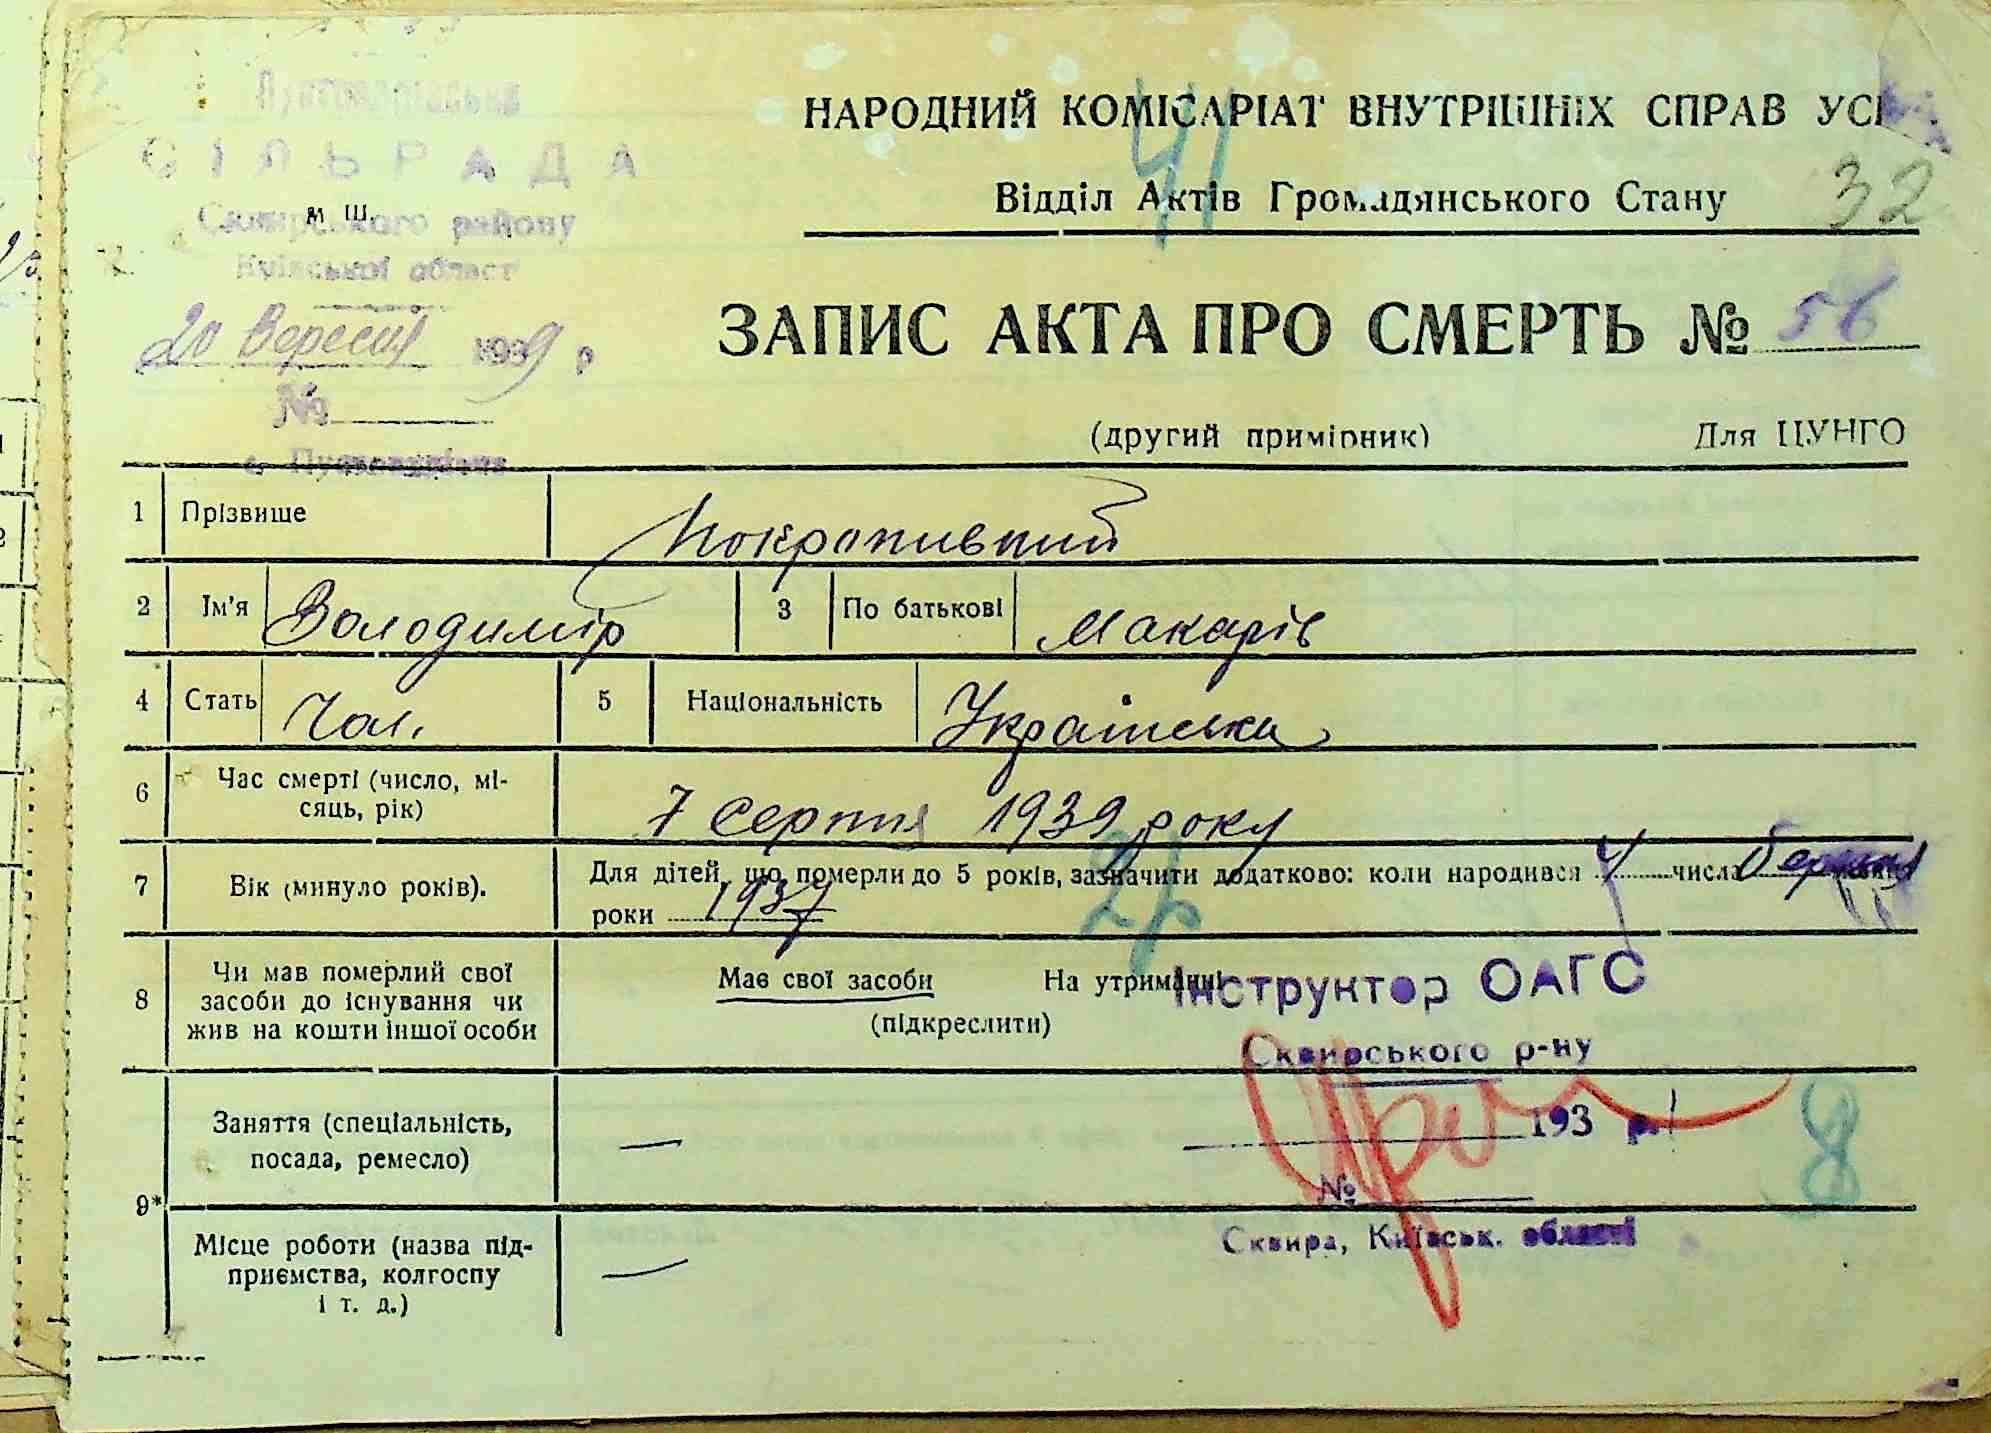 СІЛЬРАДА
Сквирського району
Київської област
20 Вересня 1939 р
№
НАРОДНИЙ КОМІСАРІАТ ВНУТРІШНІХ СПРАВ УС
41
Відділ Актів Громадянського Стану
32
ЗАПИС АКТА ПРО СМЕРТЬ № 56
(другий примірник) Для ЦУНГО
1 Прізвище Покропивний
2 Ім'я Володимір 3 По батькові Макарів
4 Стать Чол. 5 Національність Українська
6 Час смерті (число, мі-
сяць, рік) 7 серпня 1939 року
7 Вік (минуло років). Для дітей, що померли до 5 років, зазначити додатково: коли народився 4 числа
роки 1937
2р
8 Чи мав померлий свої
засоби до існування чи
жив на кошти іншої особи
Має свої засоби На утриманні
(підкреслити)
Інструктор ОАГС
Сквирського р-ну
193 р.
№
Сквира, Київськ. області
8
9* Заняття (спеціальність,
посада, ремесло) —
Місце роботи (назва під-
приємства, колгоспу
і т. д.) —